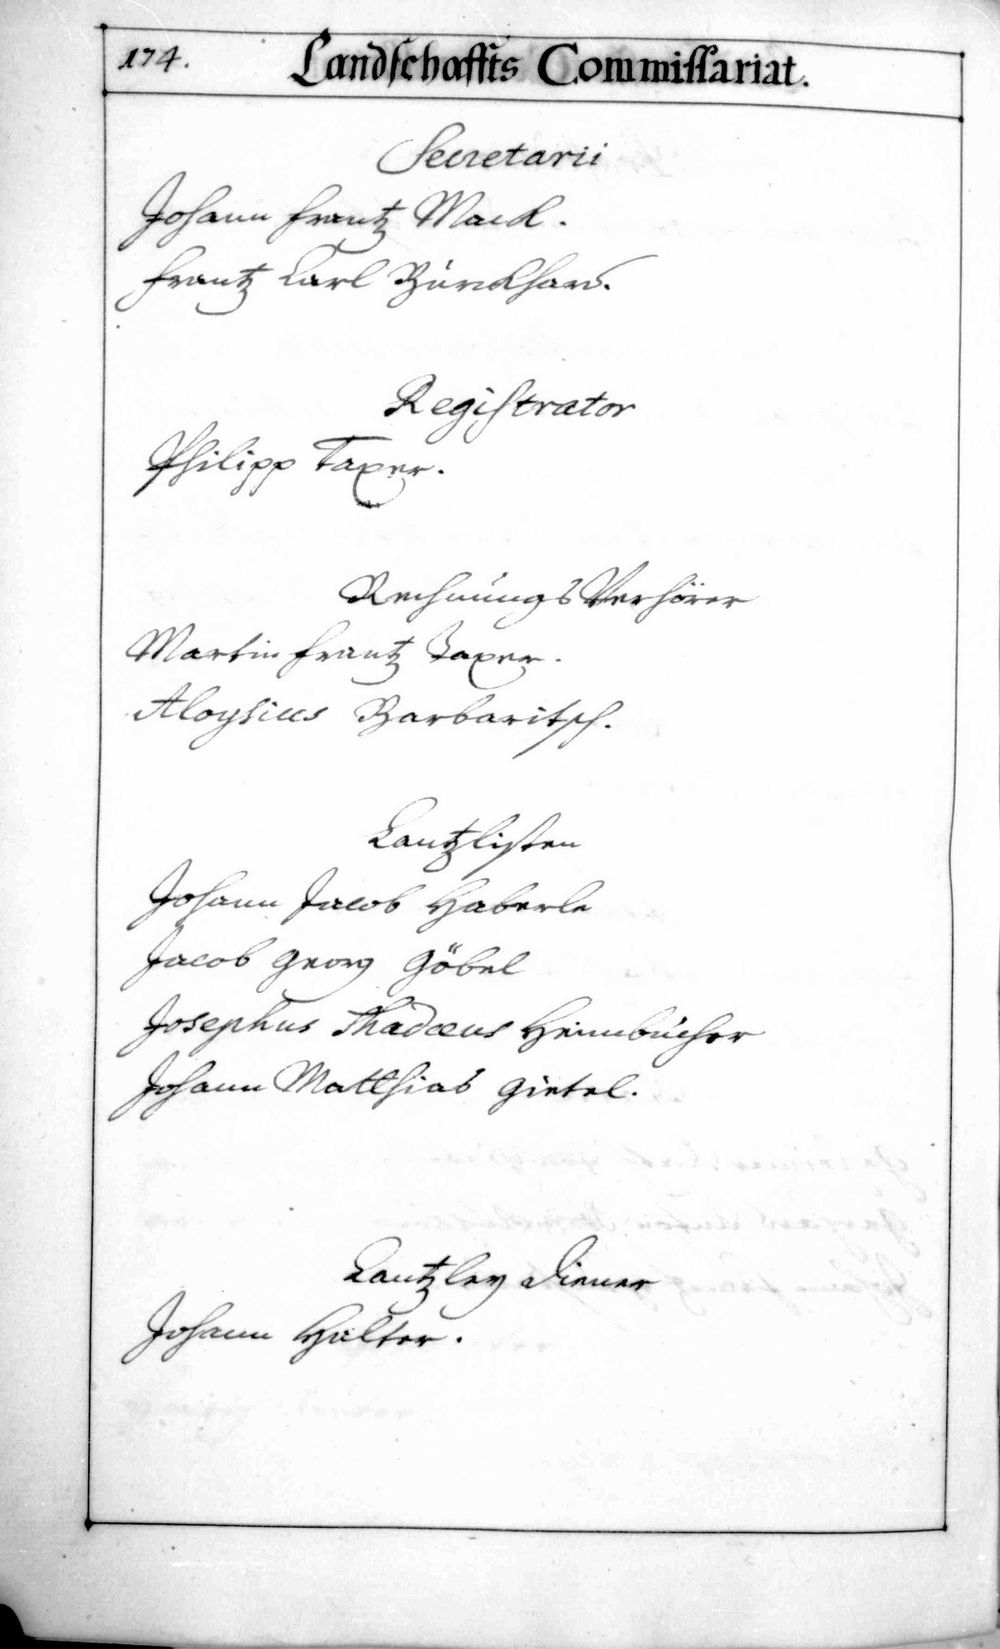 174.
Landschaffts Commissariat.
Secretarii
Johann Frantz Mack.
Frantz Carl Bürckhard.
Registrator
Philipp Taxer.
Rechnungs Verhörer
Martin Frantz Taxer.
Aloysius Barbaritsch.
Cantzlisten
Johann Jacob Haberle
Jacob Georg Göbel
Josephus Thadæus Heimbücher
Johann Matthias Gietel.
Cantzley Diener
Johann Halter.